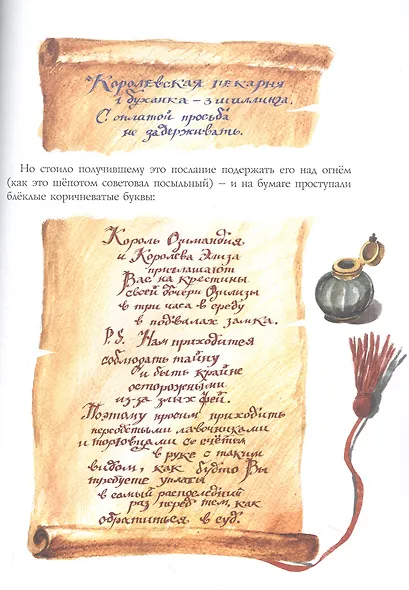 Королевская пекарня
1 буханка – 3 шиллинга.
С оплатой просьба
не задерживать.
Но стоило получившему это послание подержать его над огнём
(как это шёпотом советовал посыльный) – и на бумаге проступали
блёклые коричневатые буквы:
Король Озимандия
и Королева Элиза
приглашают
Вас на крестины
своей дочери Озилизы
в три часа в среду
в подвалах замка.
P.S. Нам приходится
соблюдать тайну
и быть крайне
осторожными
из-за злых фей.
Поэтому просим приходить
переодетыми лавочниками
и торговцами со счётом
в руке с таким
видом, как будто Вы
требуете уплаты
в самый распоследний
раз перед тем, как
обратиться в суд.